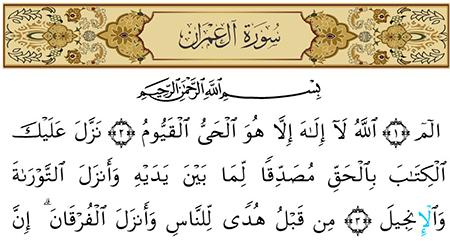 سُورَةُ آلِ عِمْرَان
بِسْمِ اللَّهِ الرَّحْمَٰنِ الرَّحِيمِ
الٓمٓ ﴿١﴾ اللَّهُ لَآ إِلَـٰهَ إِلَّا هُوَ الْحَىُّ الْقَيُّومُ ﴿٢﴾ نَزَّلَ عَلَيْكَ
الْكِتَـٰبَ بِالْحَقِّ مُصَدِّقًا لِّمَا بَيْنَ يَدَيْهِ وَأَنزَلَ التَّوْرَىٰةَ
وَالْإِنجِيلَ ﴿٣﴾ مِن قَبْلُ هُدًى لِّلنَّاسِ وَأَنزَلَ الْفُرْقَانَ ۗ إِنَّ